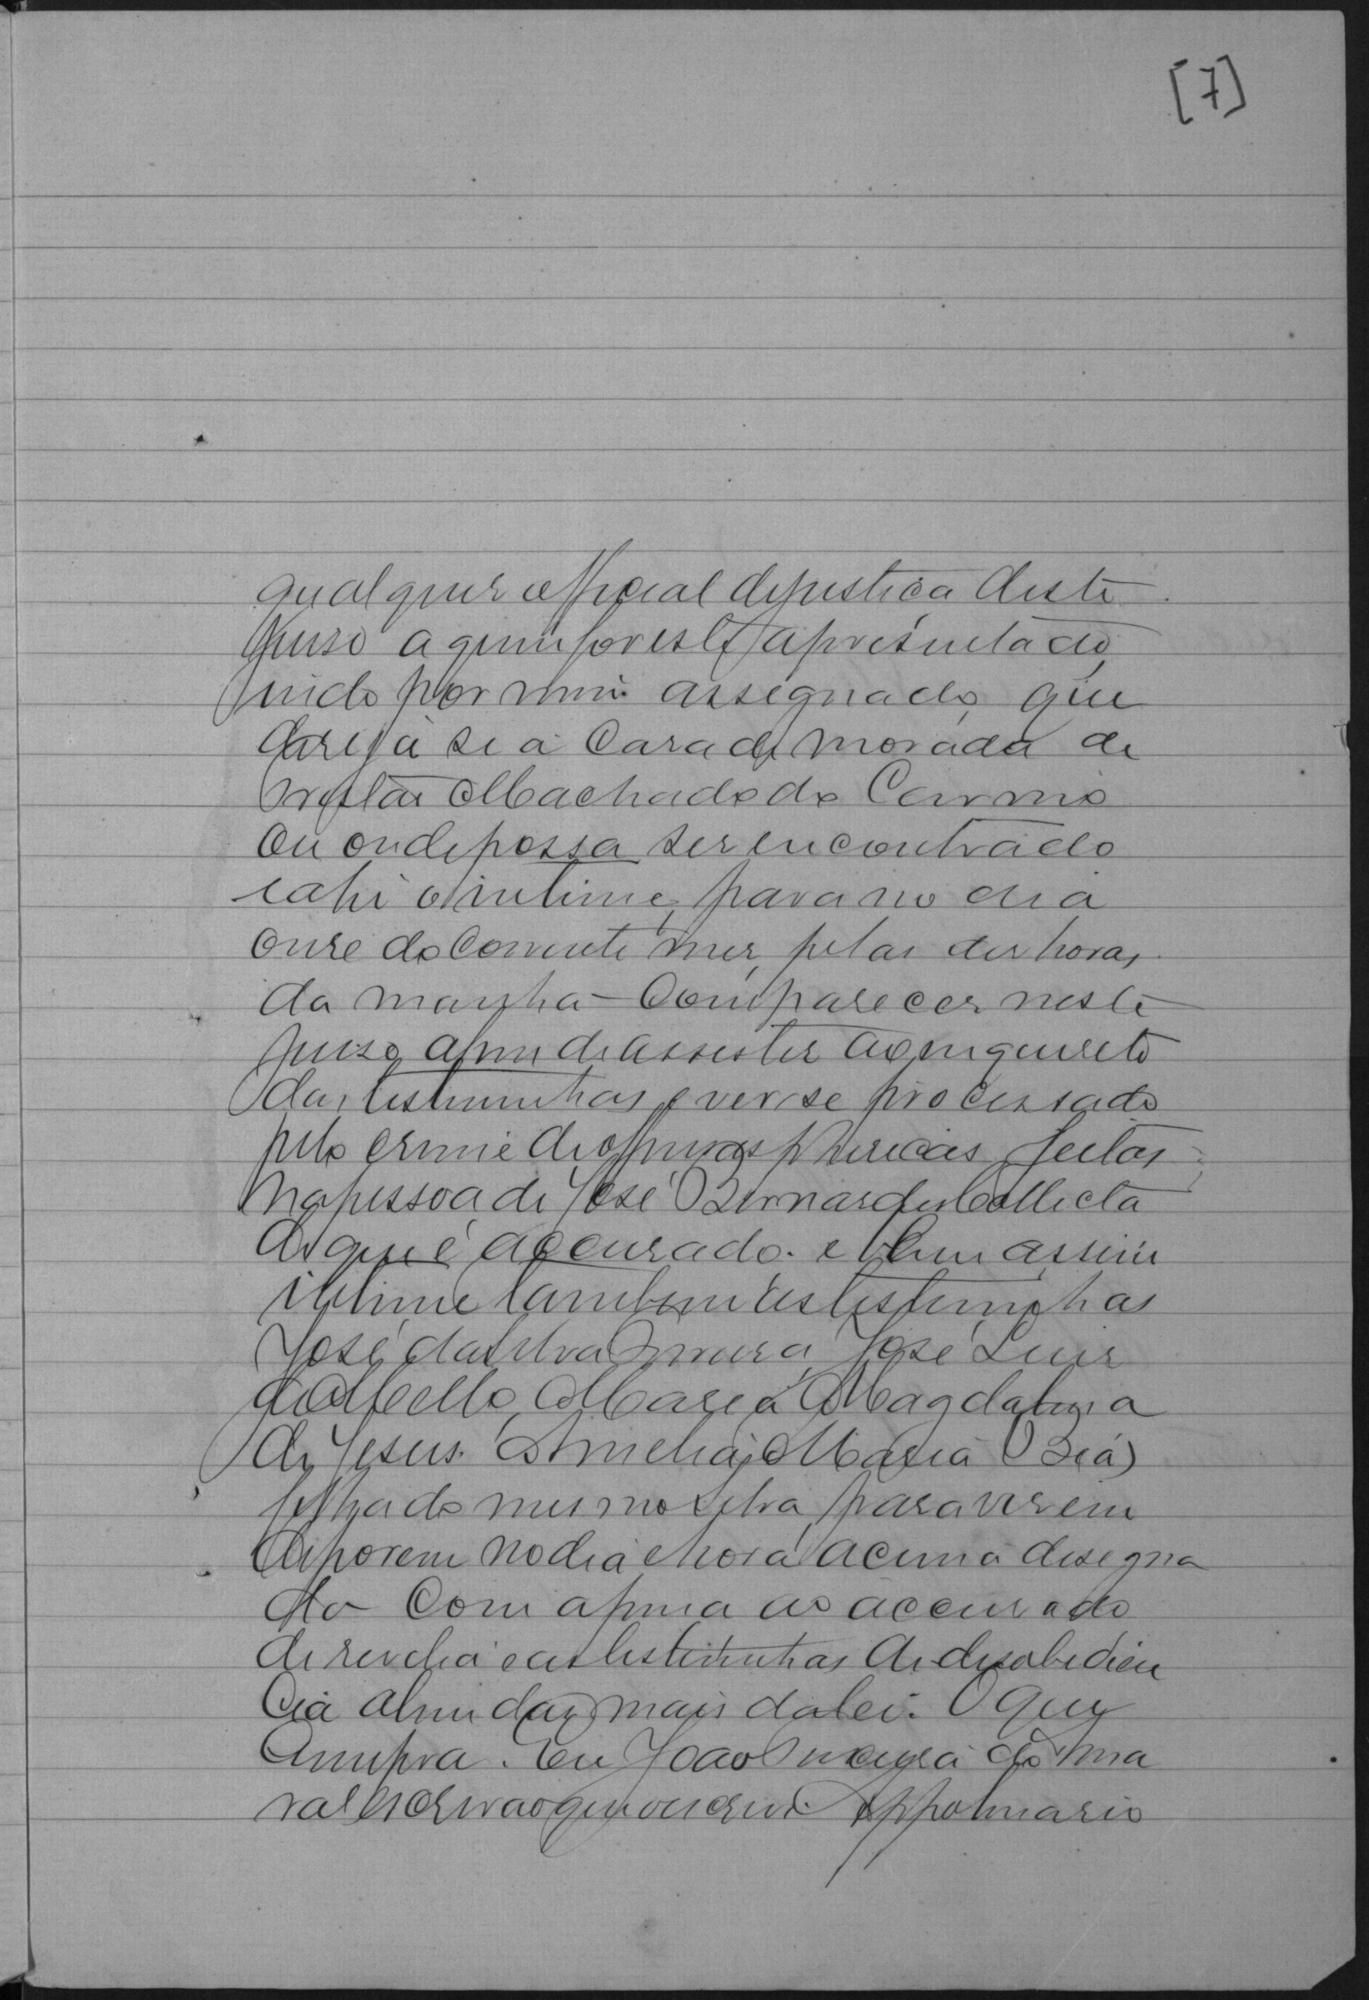 [7]
qualquer official de justiça deste
Juiso a quem for este apresentado
indo por mim assignado, que
dirija se a casa de morada de
Machado do Carmo
ou onde possa ser encontrado
e ahi o intime, para no dia
onze do corrente mez, pelas dez horas
da manha - comparecer neste
juiso afim de assestir ao inquireto
das testimunhas e ver se processado
pelo crime de offensas phisicas feitas
na pessoa de José Bernardes Collecta
de que é accusado. e bem assim
intime tambem as testemunhas
José da Silva José Luis
de Mello, Maria Magdalena
de Jesus. Amelia, Maria (Biá)
filha do mesmo Silva, para virem
deporem no dia e hora acima desegna
do - Com a pena ao accusado
de revelia e as testimunhas de desobedien
cia alem das mais da lei. O que
Cumpra. Eu João do Ama
ral escrivão que o escrevi. Appolinario